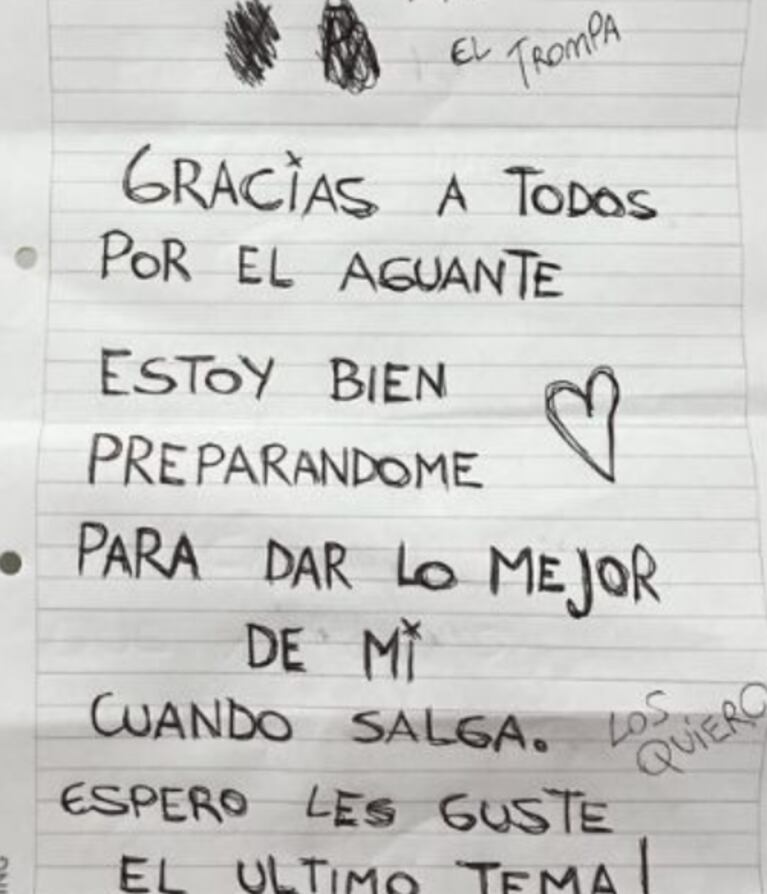 EL TROMPA
GRACiAS A TODOS
POR EL AGUANTE
ESTOY BIEN
PREPARANDOME
PARA DAR LO MEJOR
DE Mi
CUANDO SALGA.
LOS
QUiERO
ESPERO LES GUSTE
EL ULTIMO TEMA!